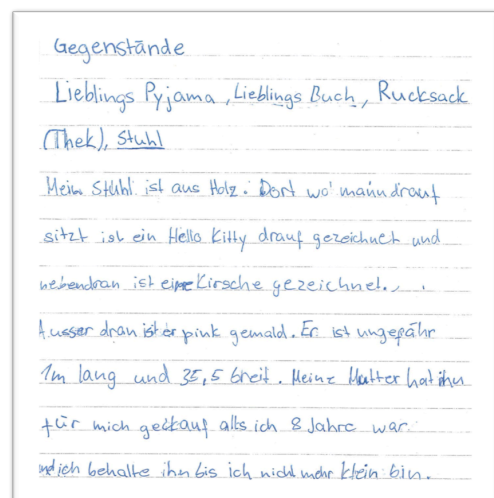 Gegenstände
Lieblings Pyjama, Lieblings Buch, Rucksack
(Thek), Stuhl
Mein Stuhl ist aus Holz. Dort wo mann drauf
sitzt ist ein Hello Kitty drauf gezeichnet und
nebendran ist eine Kirsche gezeichnet.
Ausser dran ist er pink gemald. Er ist ungefähr
1m lang und 35,5 breit. Meine Mutter hat ihn
für mich gekauf alls ich 8 Jahre war.
und ich behalte ihn bis ich nicht mehr klein bin.